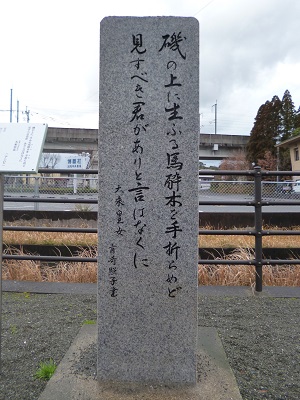 磯の上に生ふる馬酔木を手折らめど
見すべき君がありと言はなくに
大来皇女